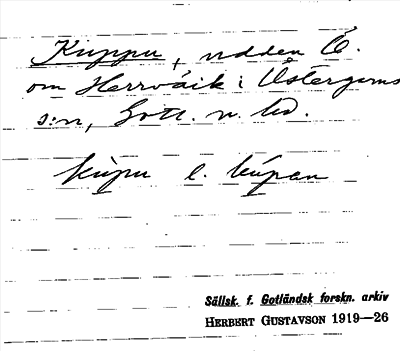 Kuppu, udden Ö.
om Herrvik i Östergarns
s:n, Gotl. n. hd.
kùpu l. kúpan
Sällsk. f. Gotländsk forskn. arkiv
HERBERT GUSTAVSON 1919—26